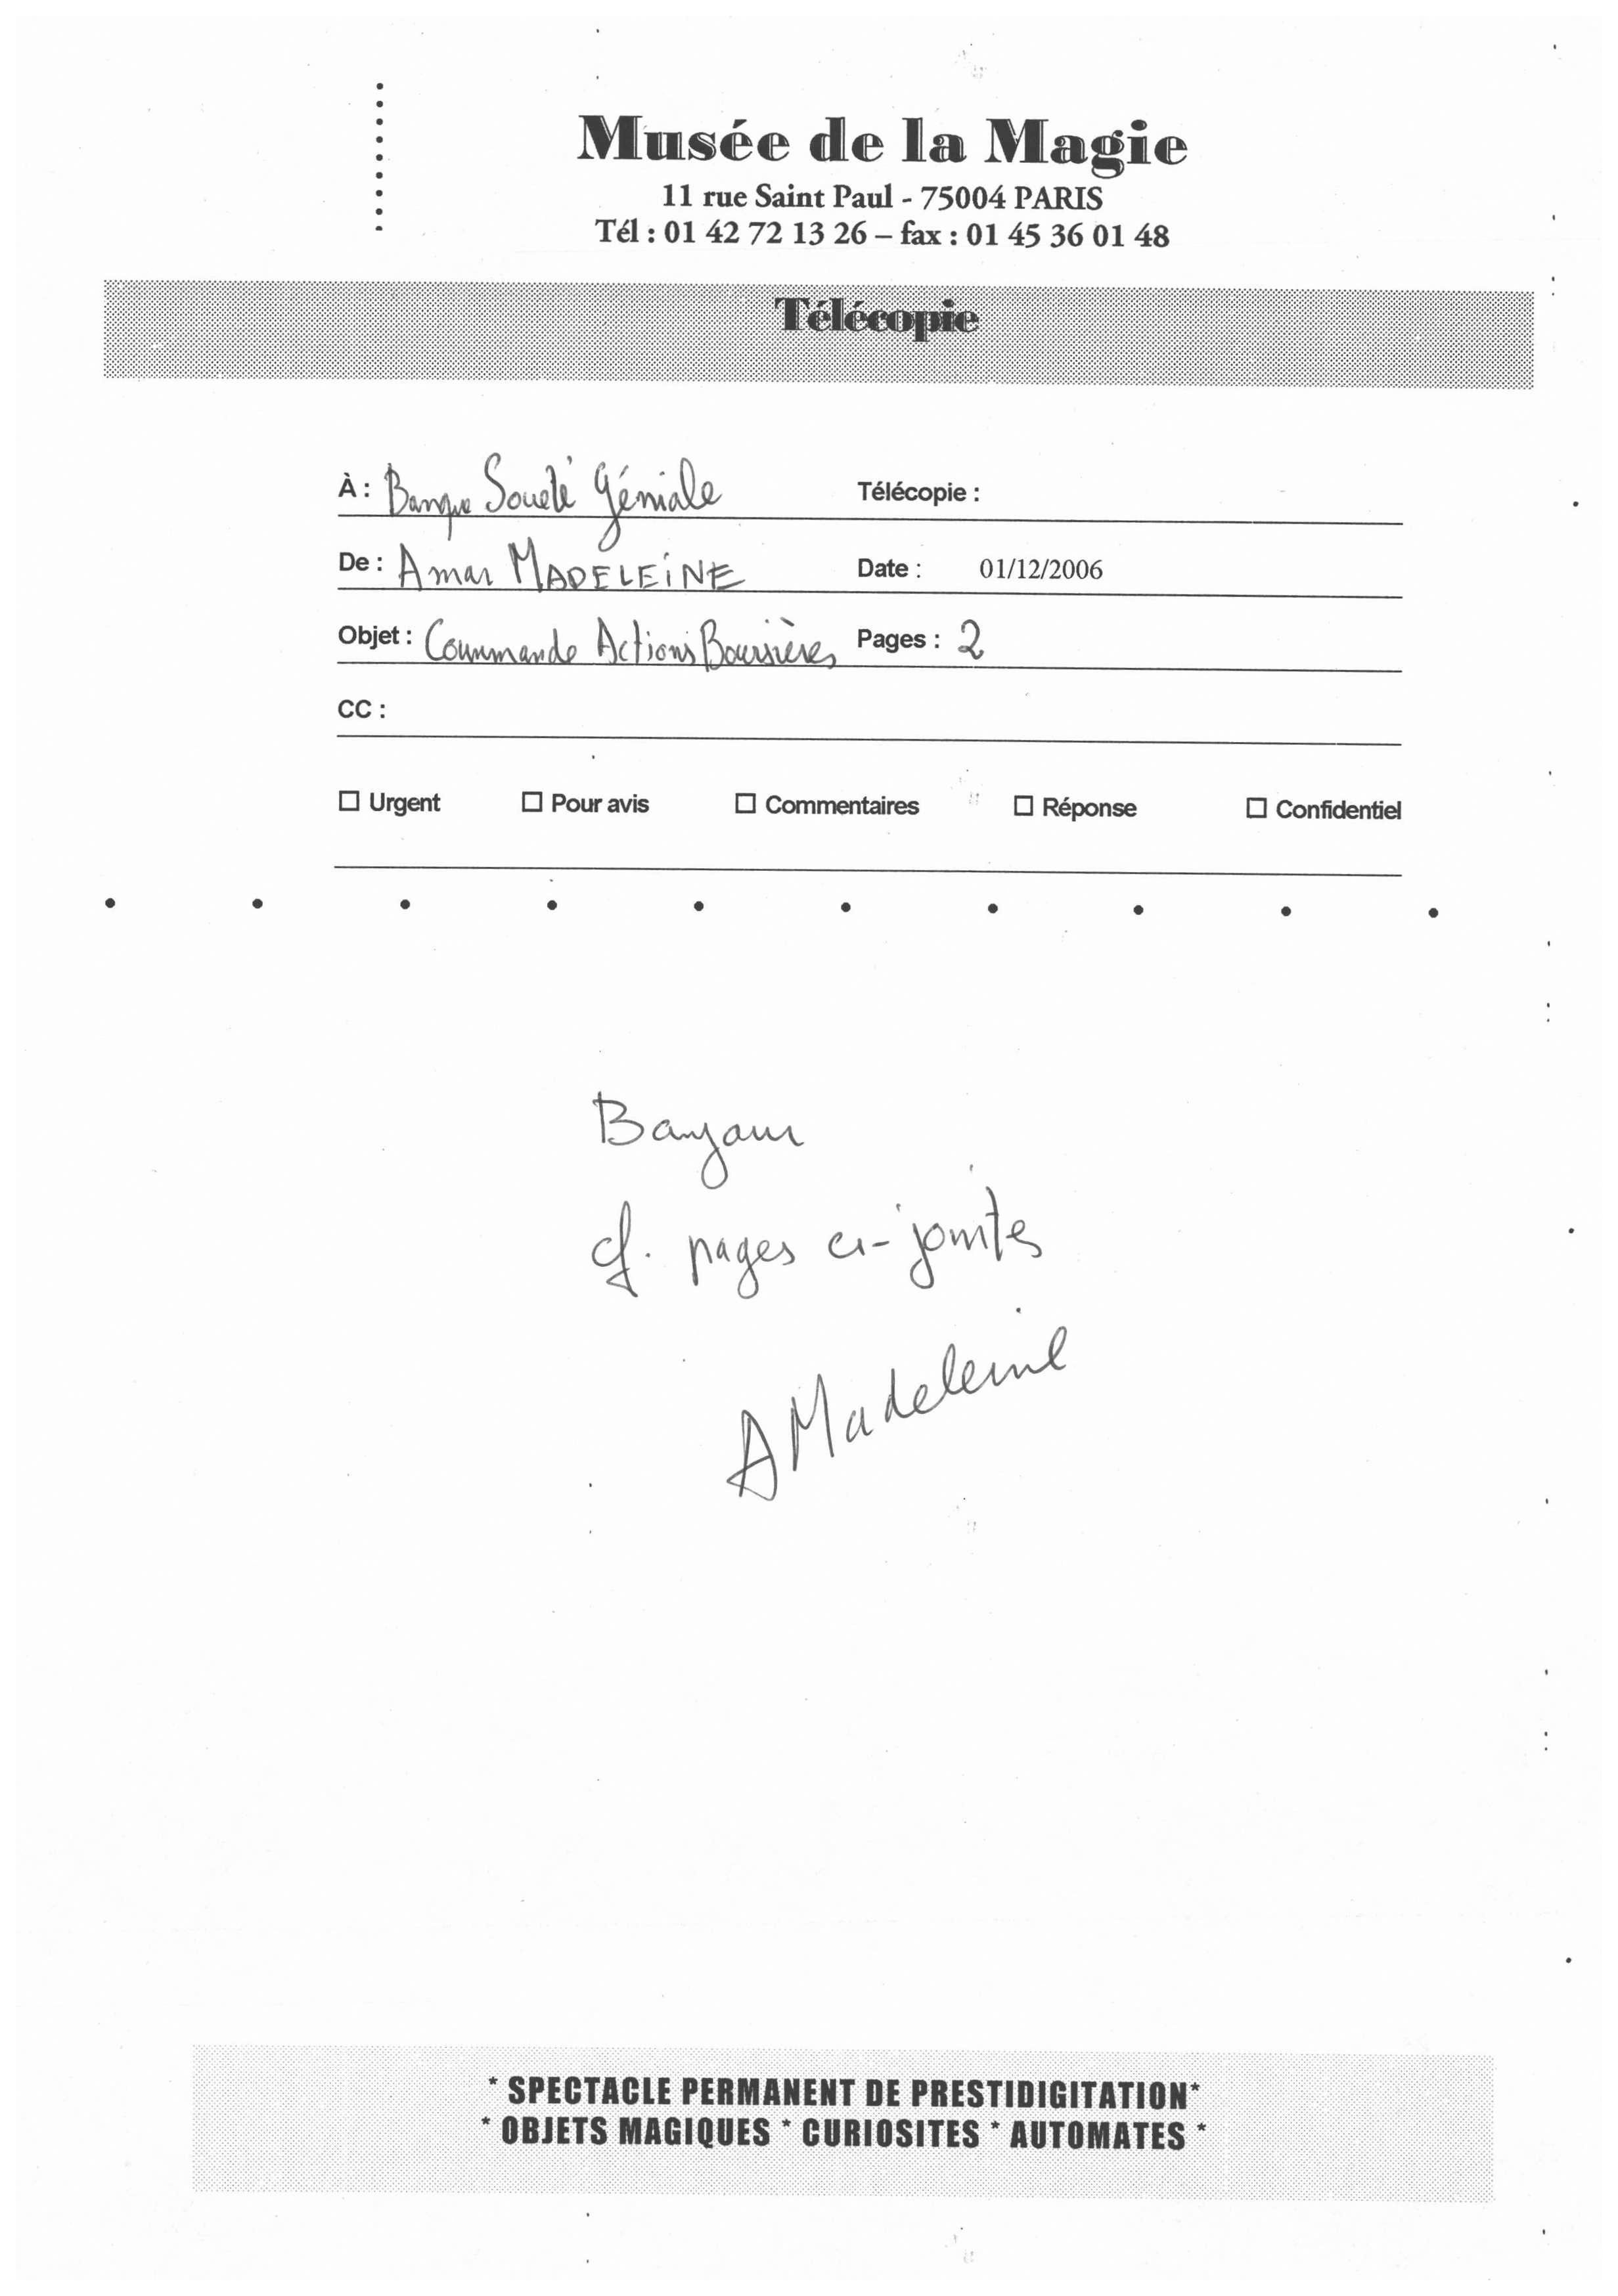 Musée de la Magie
11 rue Saint Paul - 75004 PARIS
Tél : 01 42 72 13 26 – fax : 01 45 36 01 48
Télécopie
À : Banque Société Géniale Télécopie :
De : Amar MADELEINE Date : 01/12/2006
Objet : Commande Actions Boursières Pages : 2
CC :
☐ Urgent ☐ Pour avis ☐ Commentaires ☐ Réponse ☐ Confidentiel
Bonjour
cf. pages ci-jointes
AMadeleine
* SPECTACLE PERMANENT DE PRESTIDIGITATION*
* OBJETS MAGIQUES * CURIOSITES * AUTOMATES *